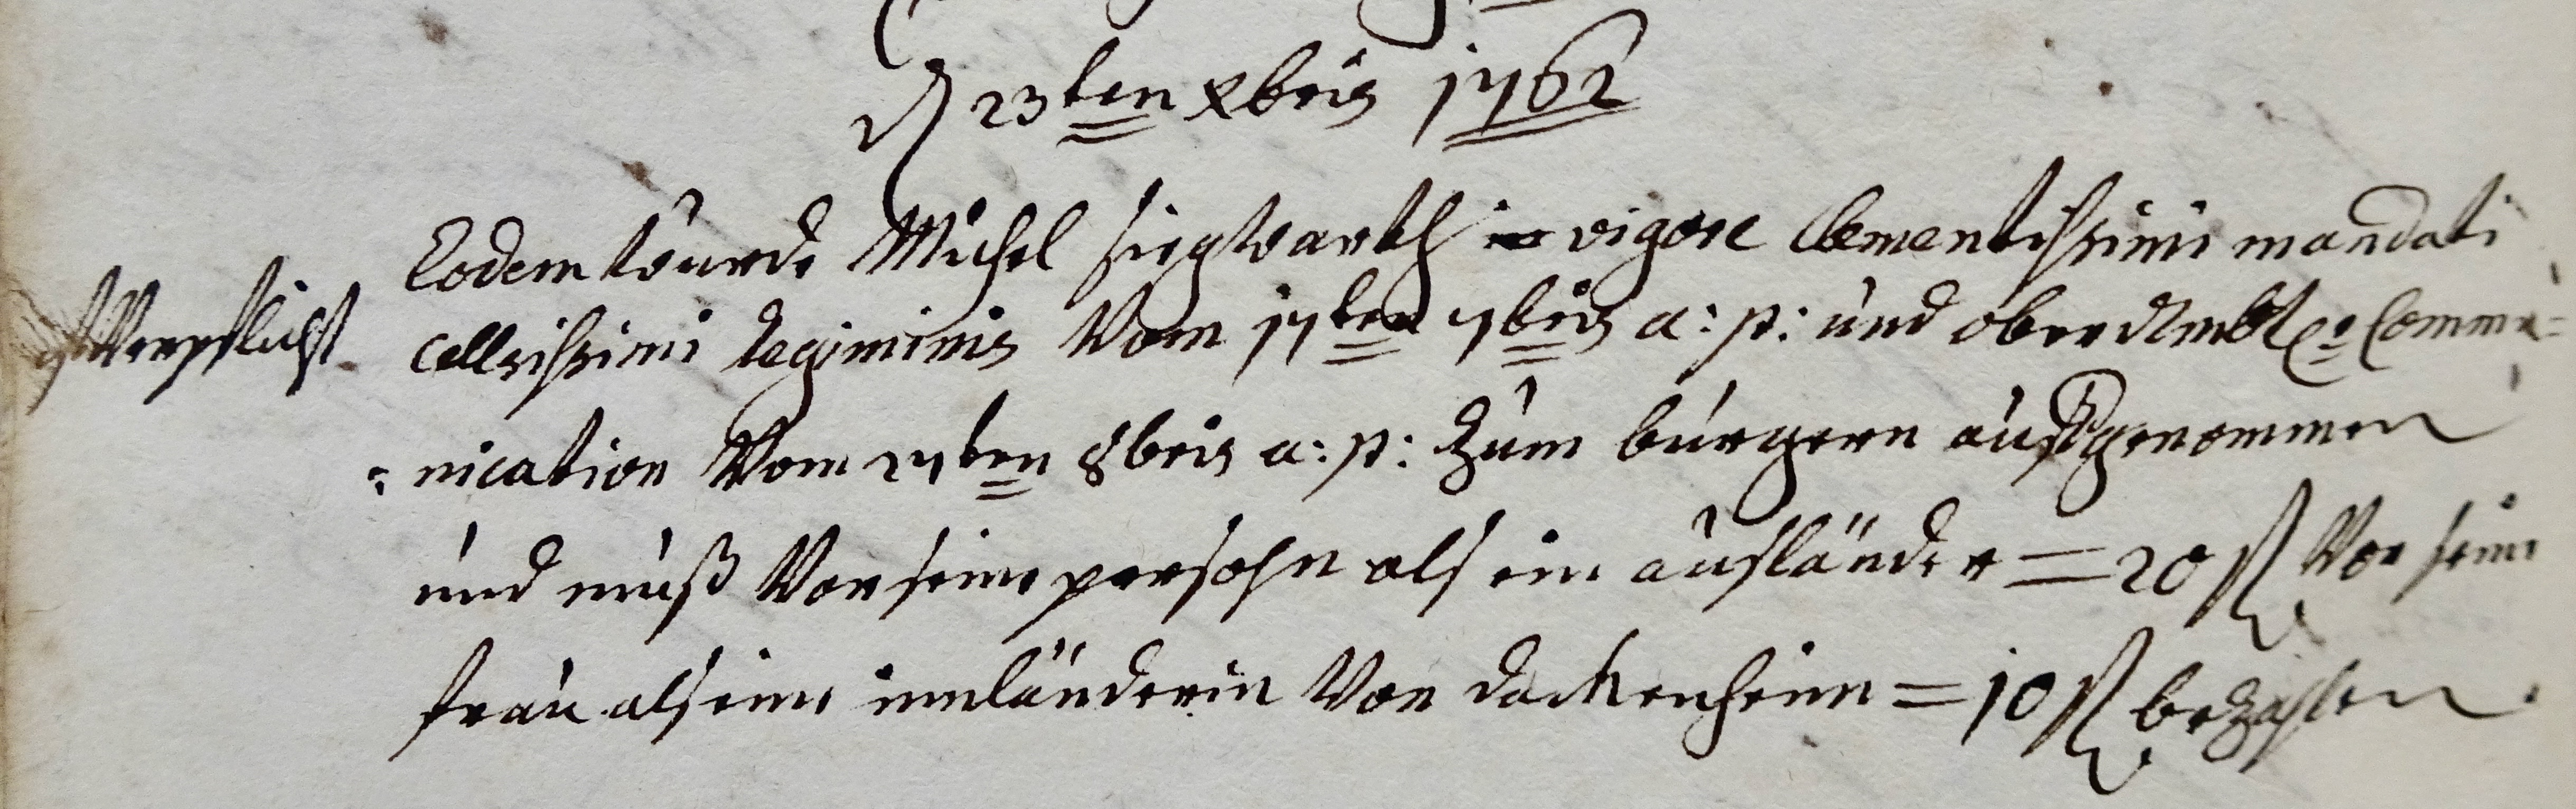 d 23ten Xbris 1762
Eodem wurde Michel Siegwarth in vigore Clementissimi mandati
ist Verpflicht
Cellsissimi Regiminis Vom 17ten 7bris a: p: und oberAmbtl. Commu=
=nication Vom 27ten 8bris a: p: zum burgern auffgenommen
und muß Vor seine persohn als ein ausländer = 20 fl Vor seine
frau als eine innländerin Von dackenheim = 10 fl bezahlen.